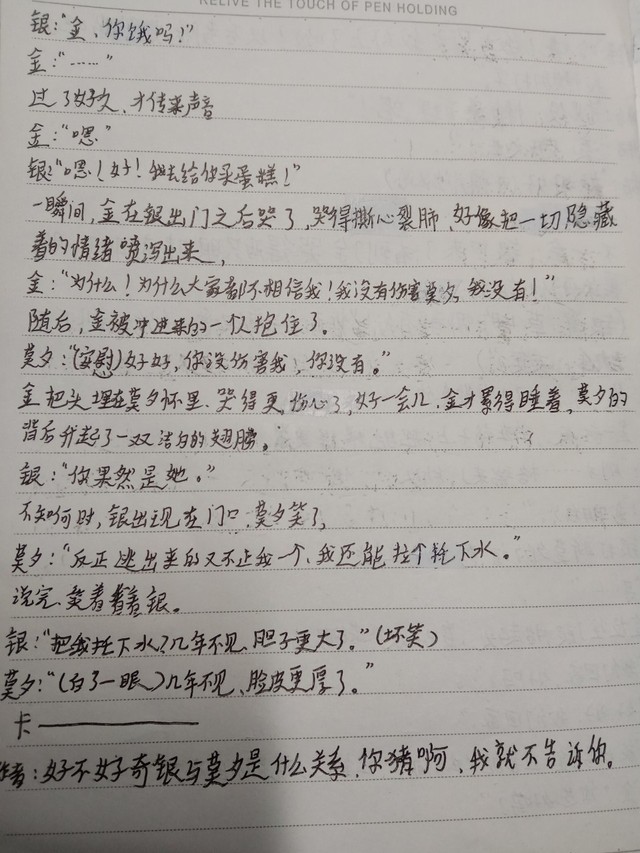 RELIVE THE TOUCH OF PEN HOLDING
银:“金、你饿吗?”
金:“……”
过了好久、才传来声音
金:“嗯”
银:“嗯!好!我去给你买蛋糕!”
一瞬间,金在银出门之后哭了,哭得撕心裂肺,好像把一切隐藏
着的情绪喷泻出来,
金:“为什么!为什么大家都不相信我!我没有伤害莫夕,我没有!”
随后,金被冲进来的一个人抱住了。
莫夕:“(安慰)好好,你没伤害我,你没有。”
金把头埋在莫夕怀里、哭得更伤心了,好一会儿、金才累得睡着,莫夕的
背后升起了一双洁白的翅膀。
银:“你果然是她。”
不知何时,银出现在门口,莫夕笑了,
莫夕:“反正逃出来的又不止我一个、我还能拉个托下水。”
说完、笑着看着银。
银:“把我托下水?几年不见、胆子更大了。”(坏笑)
莫夕:“(白了一眼)几年不见、脸皮更厚了。”
卡————
作者:好不好奇银与莫夕是什么关系、你猜啊、我就不告诉你。